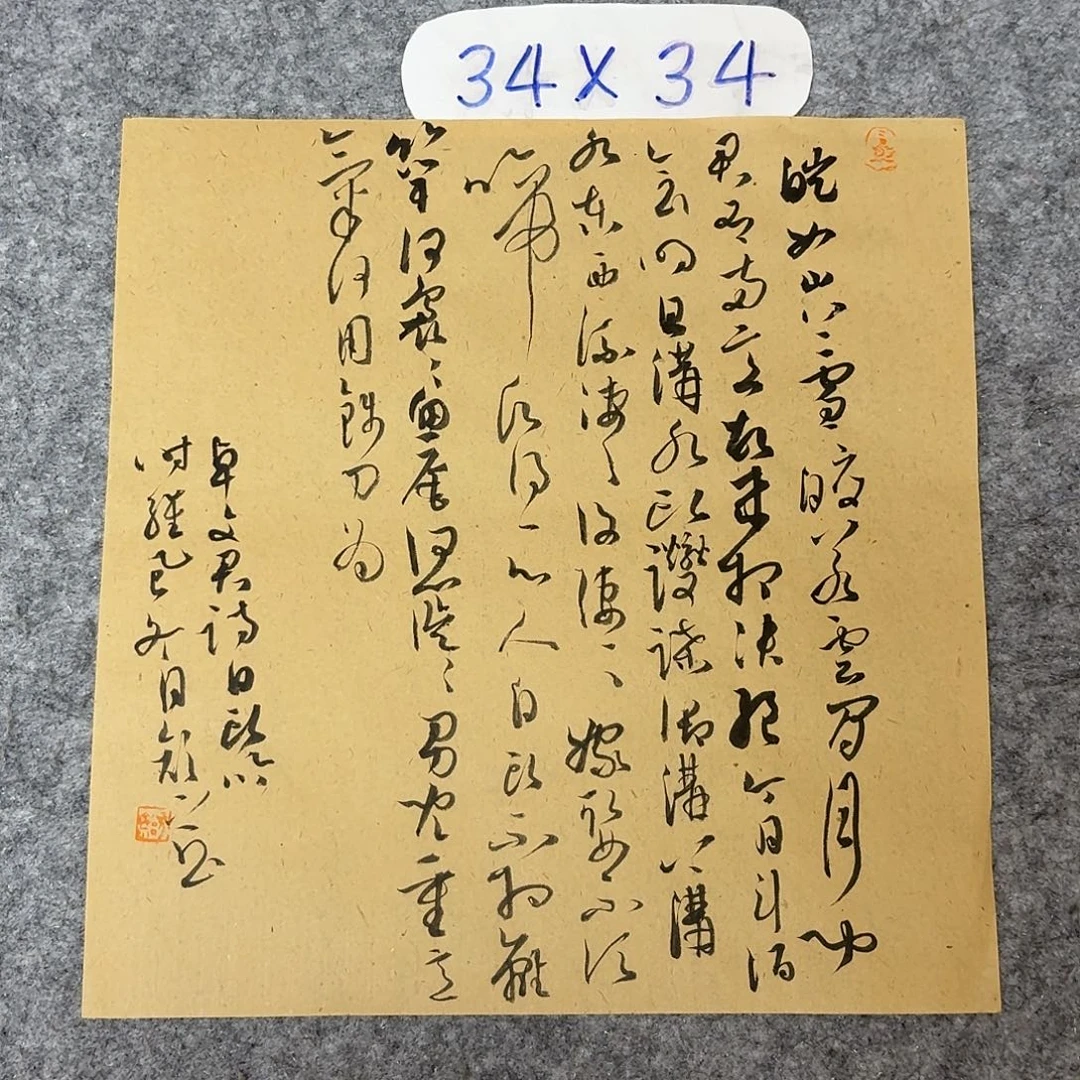 34 X 34
皚如山上雪皎若雲間月聞
君有兩意故来相決絕今日斗酒
會明旦溝水頭躞蹀御溝上溝
水東西流淒〻復淒〻嫁娶不須
啼願得一心人白頭不相離
竹竿何裊〻魚尾何簁〻男兒重意
氣何用錢刀為
卓文君詩白頭吟
时維乙巳冬日